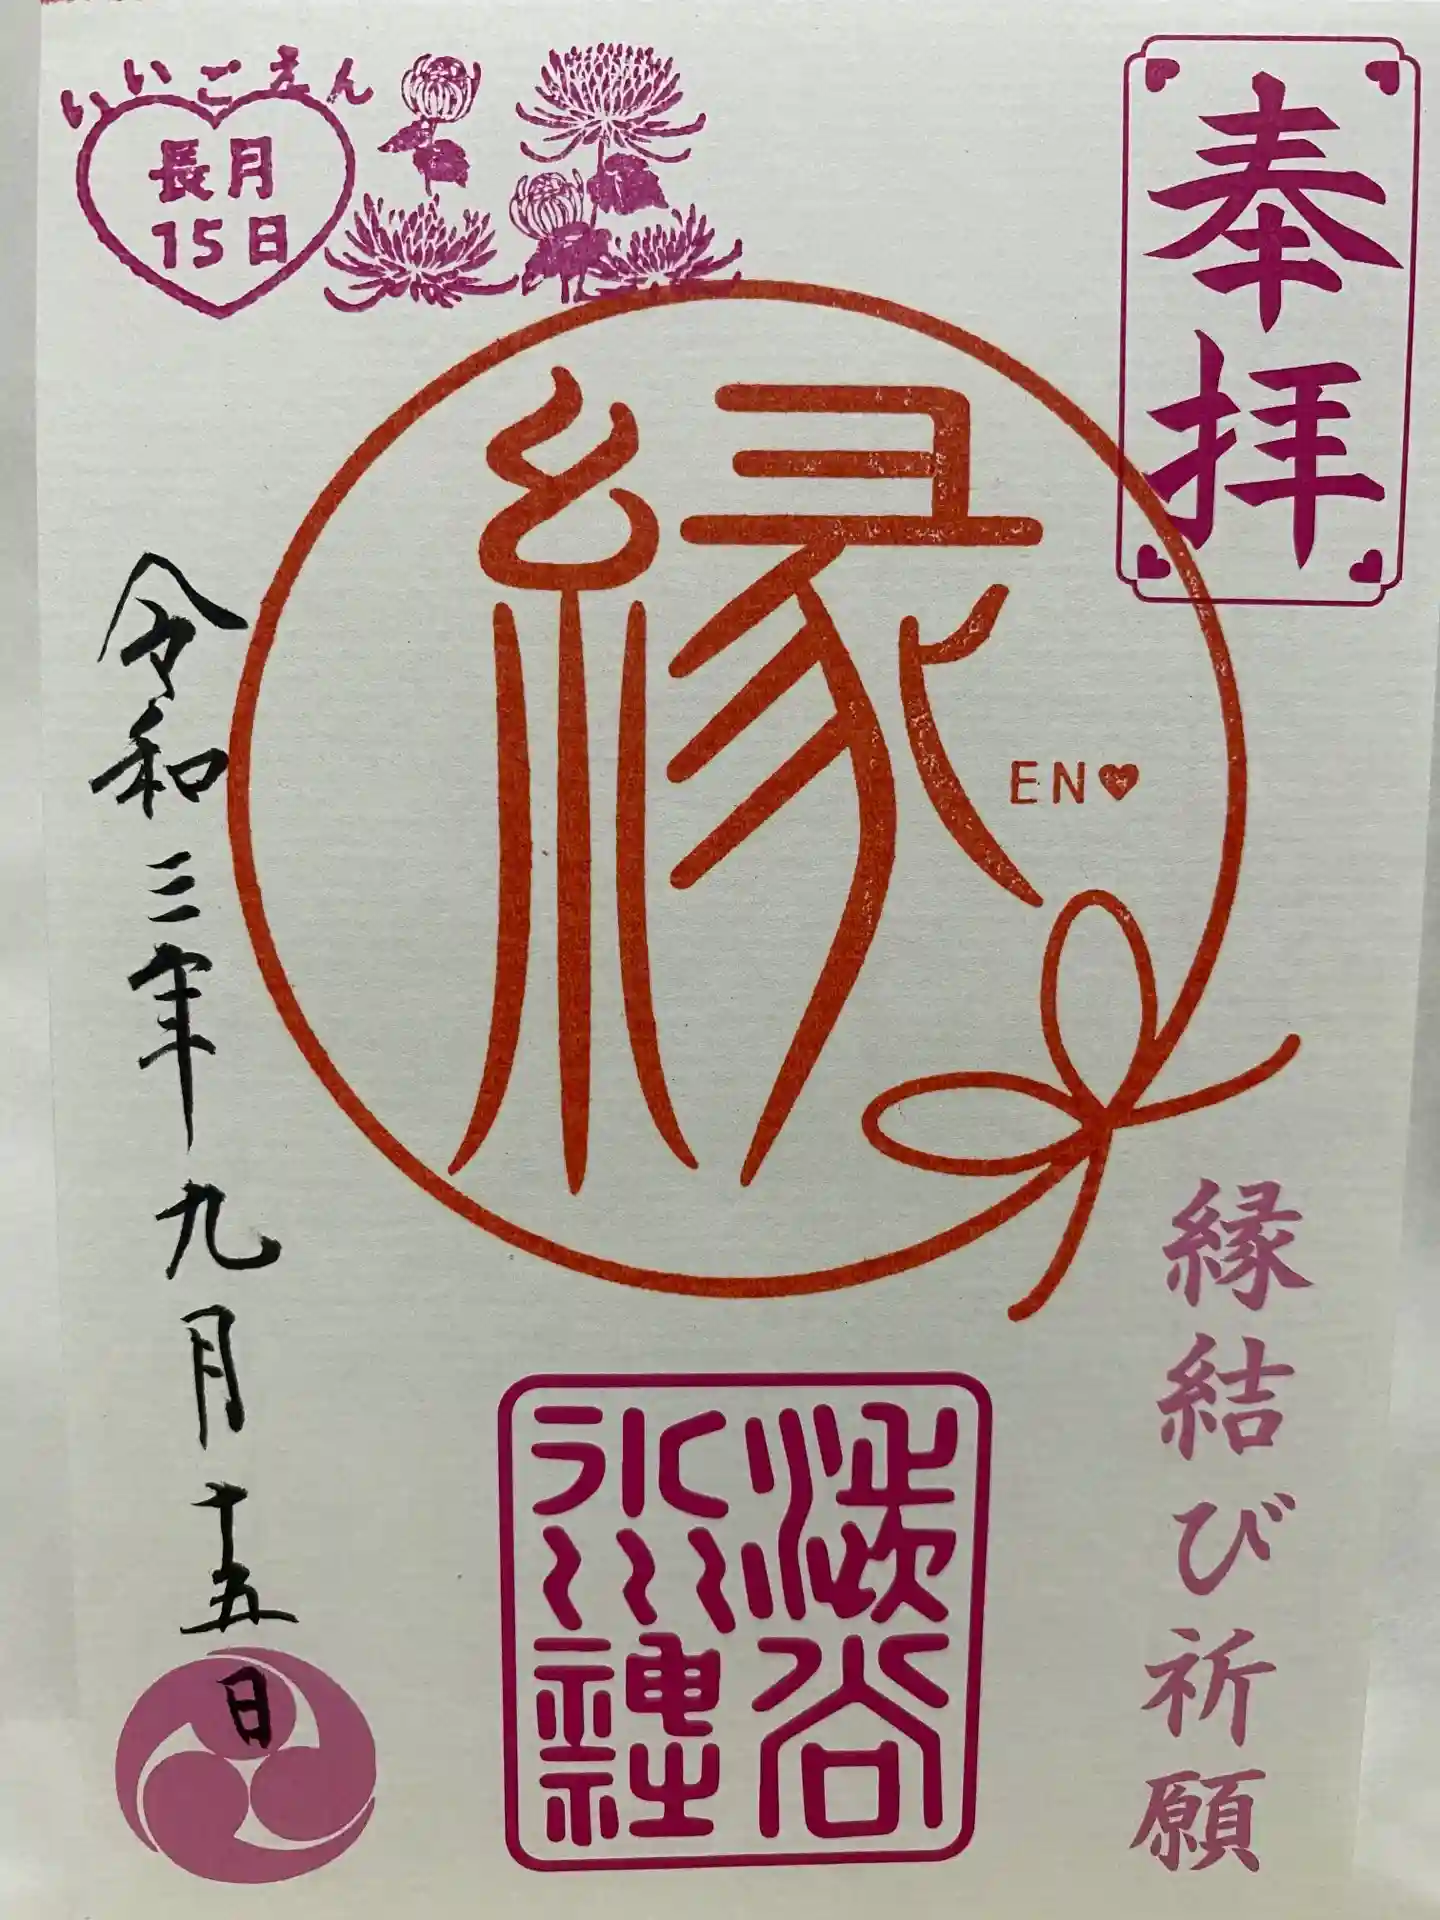 奉拝
いいごえん
長月
15日
縁
EN
縁結び祈願
澁谷
氷川
神社
令和三年九月十五日